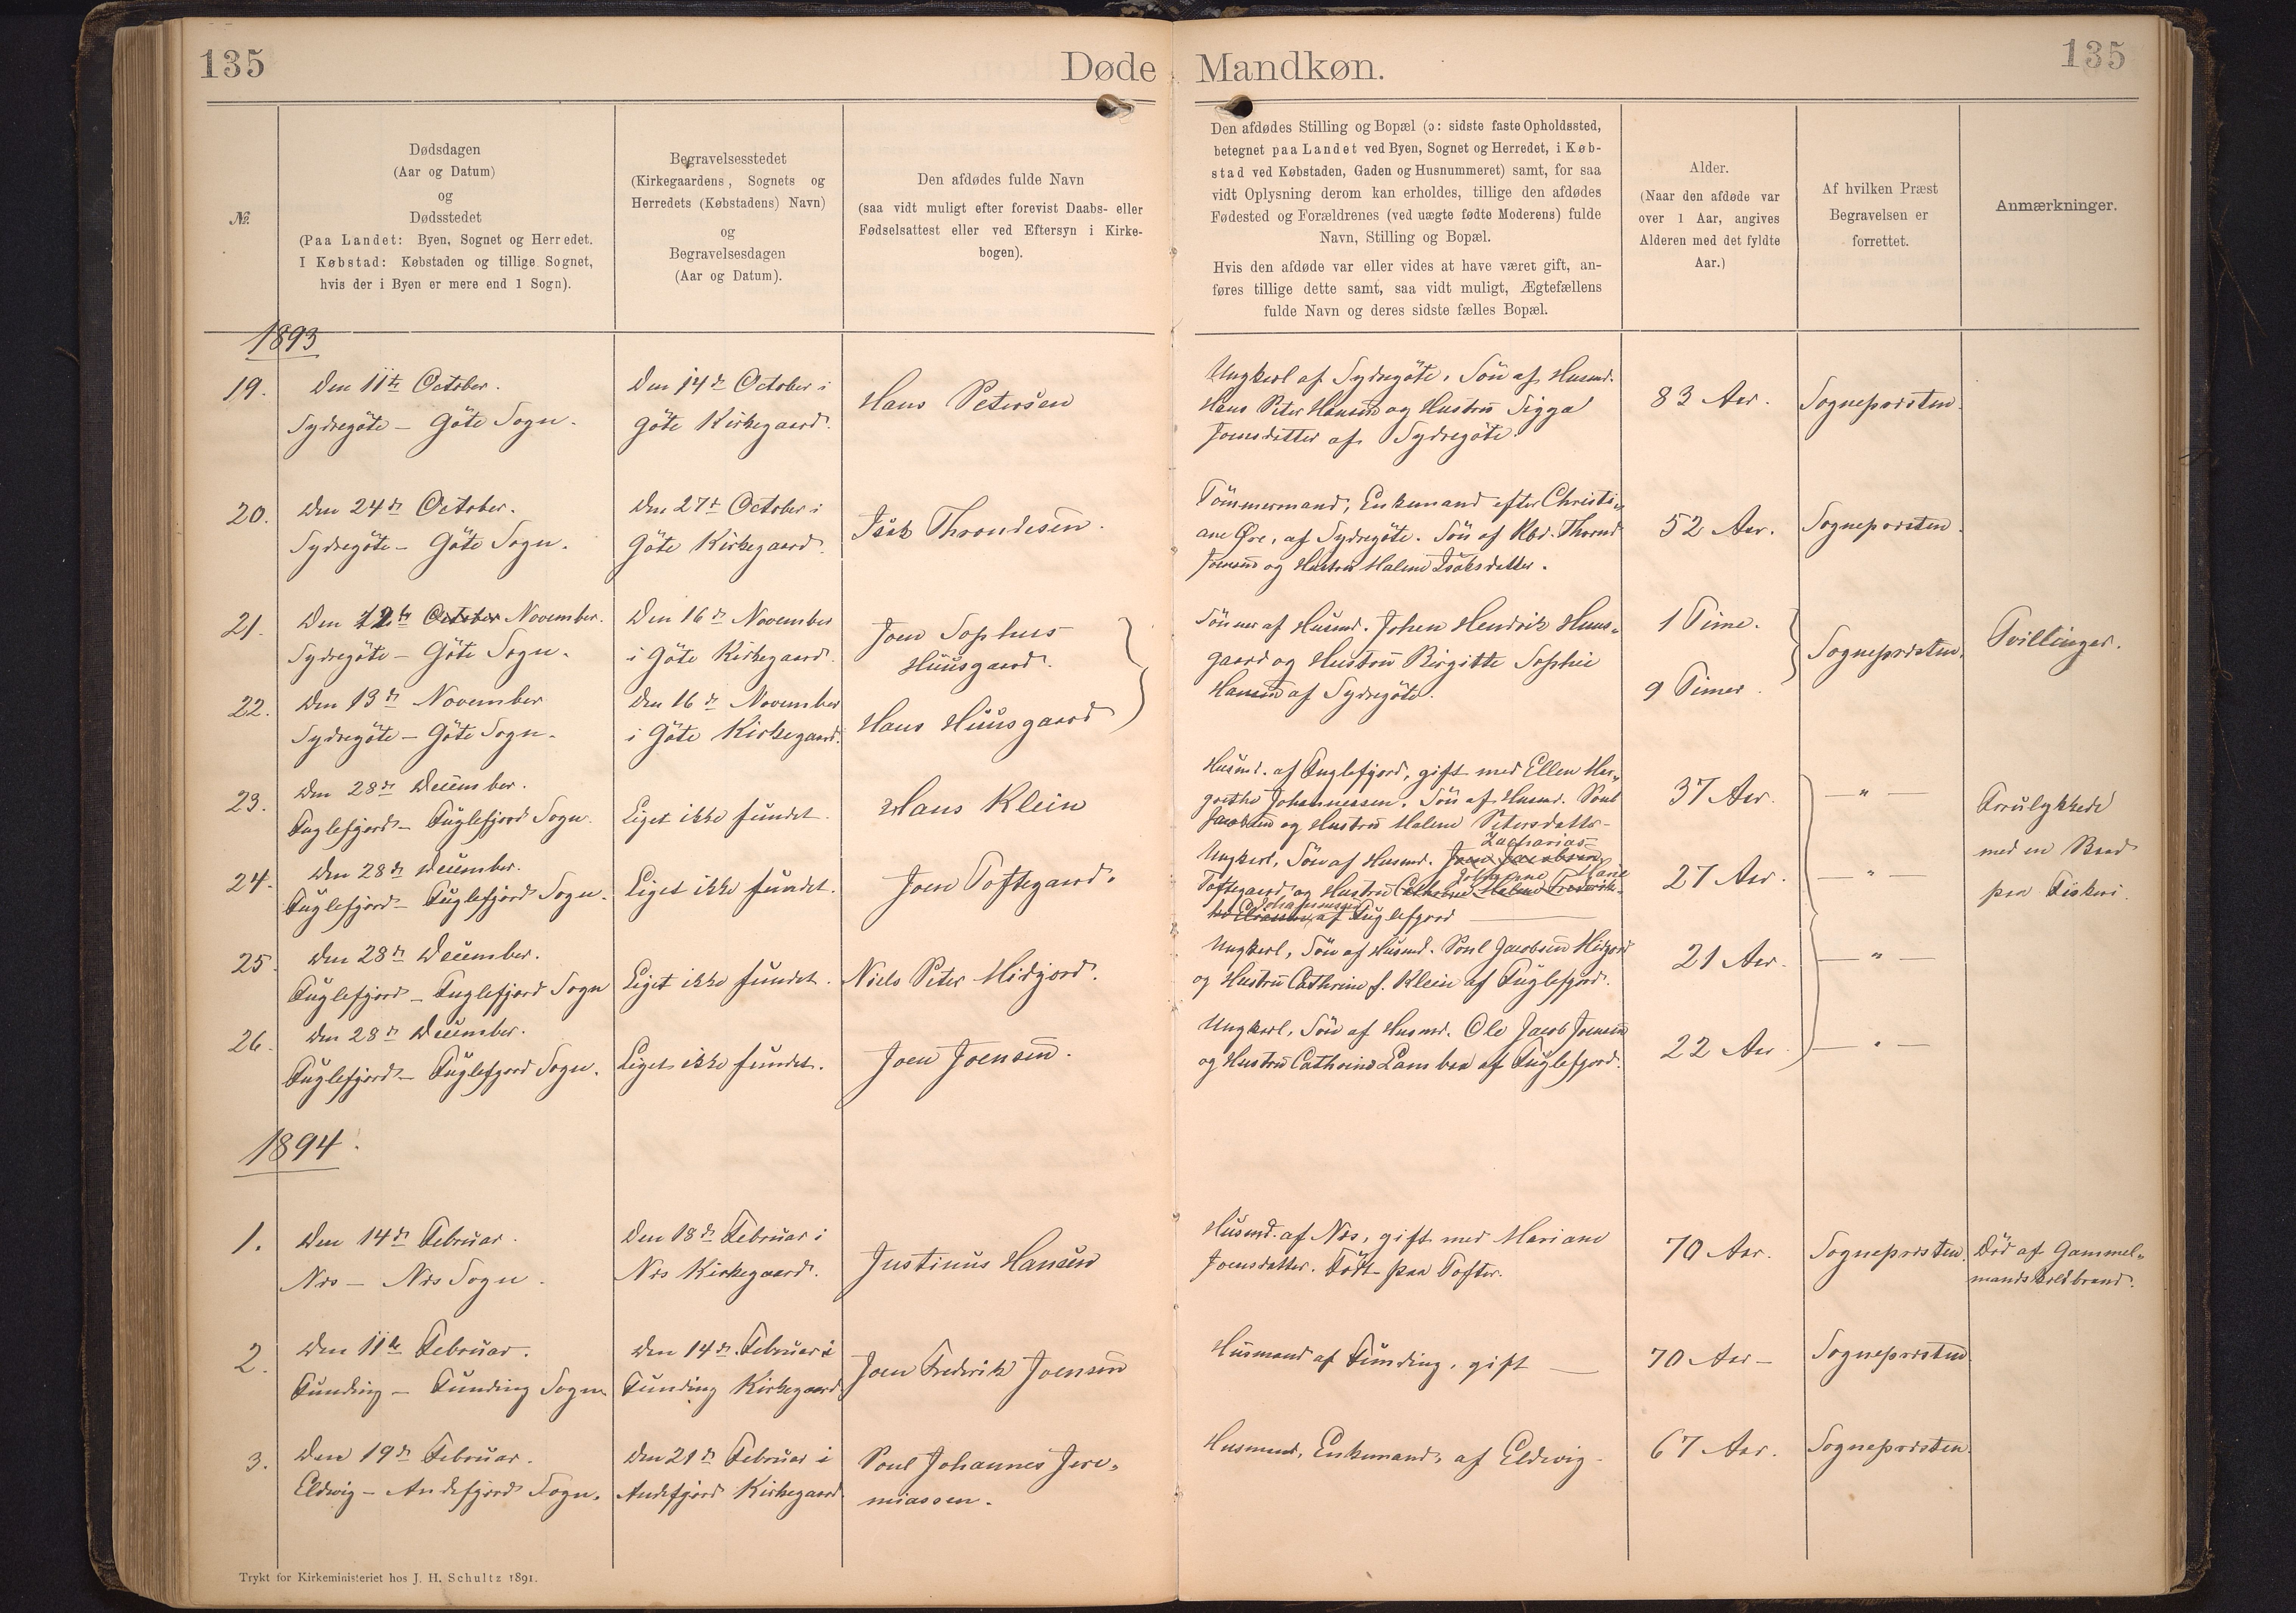 135
Døde Mandkøn.
135
№
Dødsdagen
(Aar og Datum)
og
Dødsstedet
(Paa Landet: Byen, Sognet og Herredet.
I Købstad: Købstaden og tillige Sognet,
hvis der i Byen er mere end 1 Sogn).
Begravelsesstedet
(Kirkegaardens, Sognets og
Herredets (Købstadens) Navn)
og
Begravelsesdagen
(Aar og Datum).
Den afdødes fulde Navn
(saa vidt muligt efter forevist Daabs- eller
Fødselsattest eller ved Eftersyn i Kirke-
bogen).
Den afdødes Stilling og Bopæl (ɔ: sidste faste Opholdssted,
betegnet paa Landet ved Byen, Sognet og Herredet, i Køb-
stad ved Købstaden, Gaden og Husnummeret) samt, for saa
vidt Oplysning derom kan erholdes, tillige den afdødes
Fødested og Forældrenes (ved uægte fødte Moderens) fulde
Navn, Stilling og Bopæl.
Hvis den afdøde var eller vides at have været gift, an-
føres tillige dette samt, saa vidt muligt, Ægtefællens
fulde Navn og deres sidste fælles Bopæl.
Alder.
(Naar den afdøde var
over 1 Aar, angives
Alderen med det fyldte
Aar.)
Af hvilken Præst
Begravelsen er
forrettet.
Anmærkninger.
1893
19.
Den 11te October.
Sydregöte – Göte Sogn.
Den 14de October i
Göte Kirkegaard.
Hans Petersen
Ungkarl af Sydregöte. Sön af Husmd.
Hans Peter Hansen og Hustru Sigga
Joensdatter af Sydregöte.
83 Aar.
Sognepræsten.
20.
Den 24de October.
Sydregöte – Göte Sogn.
Den 27de October i
Göte Kirkegaard.
Isak Throndesen.
Tömmermand, Enkemand efter Christi-
ane Øre, af Sydregöte. Sön af Kbd. Thrond
Joensen og Hustru Malene Isaksdatter.
52 Aar.
Sognepræsten.
21.
Den 12te October November.
Sydregöte – Göte Sogn.
Den 16de November
i Göte Kirkegaard.
Joen Sophus
Huusgaard.
Sönner af Husmd. Johan Hendrik Huus-
gaard og Hustru Birgitte Sophie
Hansen af Sydregöte.
1 Time.
Sognepræsten.
Tvillinger.
22.
Den 13de November
Sydregöte – Göte Sogn.
Den 16de November
i Göte Kirkegaard.
Hans Huusgaard
9 Timer.
23.
Den 28de December.
Fuglefjord – Fuglefjord Sogn.
Liget ikke fundet.
Hans Klein
Husmd. af Fuglefjord, gift med Ellen Mar-
grethe Johannessen. Sön af Husmd. Poul
Jacobsen og Hustru Malene Petersdatter
37 Aar.
– " –
Forulykkede
med en Baad
paa Fiskeri.
24.
Den 28de December.
Fuglefjord – Fuglefjord Sogn.
Liget ikke fundet.
Joen Toftegaard.
Zacharias
Ungkarl, Sön af Husmd. Joen Jacobsen
Johanne Marie
Toftegaard og Hustru Cathrine Malene Frederik-
Johannesen
af Fuglefjord
27 Aar.
– " –
25.
Den 28de December.
Fuglefjord – Fuglefjord Sogn
Liget ikke fundet.
Niels Peter Midjord.
Ungkarl, Sön af Husmd. Poul Jacobsen Midjord
og Hustru Cathrine f. Klein af Fuglefjord.
21 Aar.
– " –
26.
Den 28de December.
Fuglefjord – Fuglefjord Sogn.
Liget ikke fundet.
Joen Joensen.
Ungkarl, Sön af Husmd. Ole Jacob Joensen
og Hustru Cathrine Lambaa af Fuglefjord.
22 Aar
– " –
1894.
1.
Den 14de Februar.
Næs – Næs Sogn.
Den 18de Februar i
Næs Kirkegaard.
Justinus Hansen
Husmd. af Næs, gift med Mariane
Joensdatter. Födt paa Tofter.
70 Aar.
Sognepræsten.
Död af Gammel-
mandskoldbrand.
2.
Den 11te Februar.
Funding – Funding Sogn
Den 14de Februar i
Funding Kirkegaard
Joen Frederik Joensen
Husmand af Funding, gift —
70 Aar –
Sognepræsten
3.
Den 19de Februar.
Eldvig – Andefjord Sogn.
Den 21de Februar i
Andefjord Kirkegaard.
Poul Johannes Jere-
miassen.
Husmand, Enkemand, af Eldvig.
67 Aar.
Sognepræsten.
Trykt for Kirkeministeriet hos J. H. Schultz 1891.